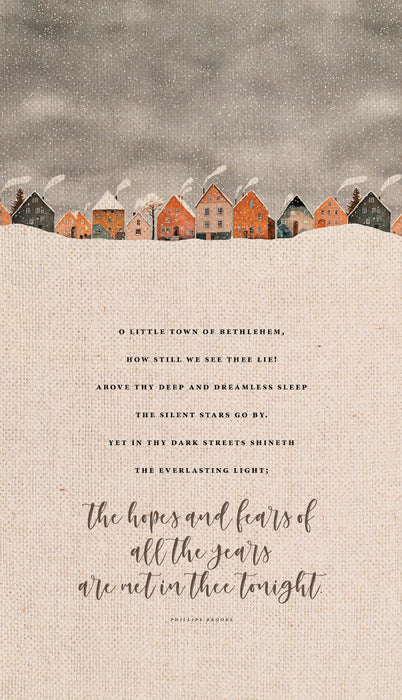 O LITTLE TOWN OF BETHLEHEM,
HOW STILL WE SEE THEE LIE!
ABOVE THY DEEP AND DREAMLESS SLEEP
THE SILENT STARS GO BY.
YET IN THY DARK STREETS SHINETH
THE EVERLASTING LIGHT;
the hopes and fears of
all the years
are met in thee tonight.
PHILLIPS BROOKS